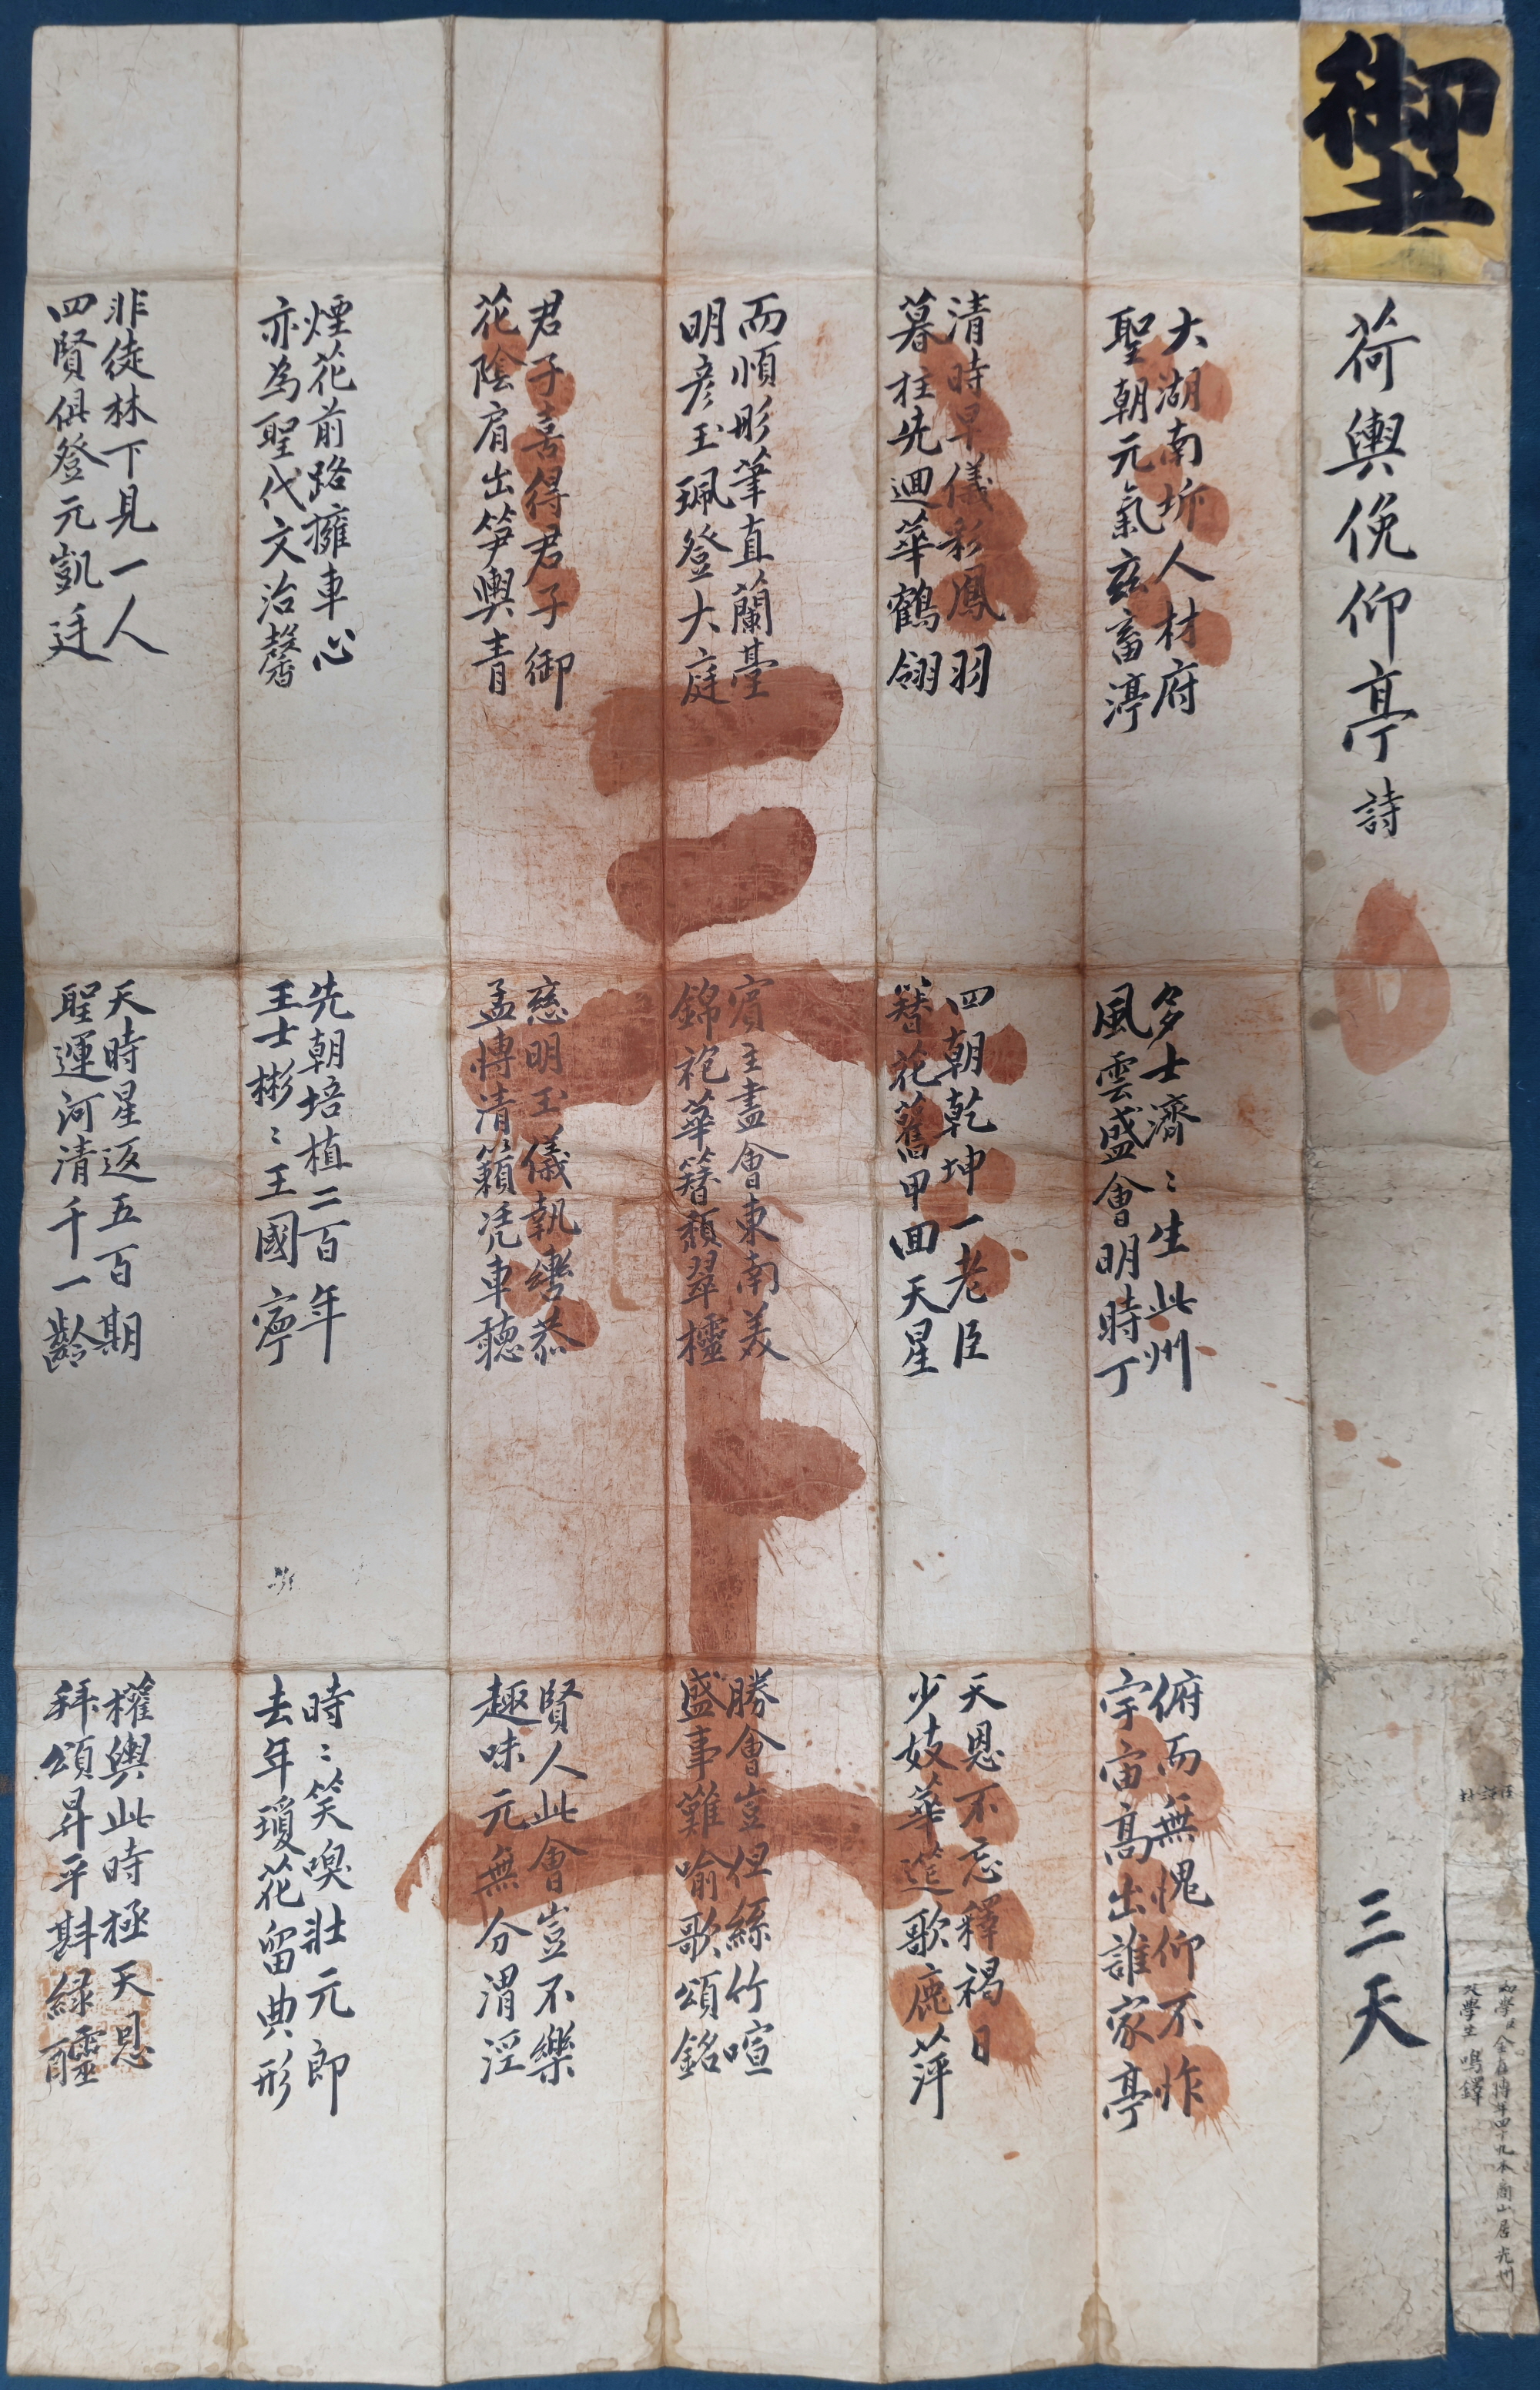 御
幼學臣金在博年四十九本商山居光州
父學生鳴鐸
荷輿俛仰亭詩
三天
大湖南圻人材府
聖朝元氣玆畜渟
多士濟〻生此州
風雲盛會明時丁
俯而無愧仰不怍
宇宙高出誰家亭
清時早儀彩鳳羽
暮柱先迴華鶴翎
四朝乾坤一老臣
簪花舊甲回天星
天恩不忘釋褐日
少妓華筵歌鹿萍
而順彤筆直蘭臺
明彦玉珮登大庭
賓主盡會東南美
錦袍華簪頳翠欞
勝會豈但絲竹喧
盛事難喻歌頌銘
君子喜得君子御
花陰肩出笋輿青
慈明玉儀執轡恭
孟博清籟凭車聽
賢人此會豈不樂
趣味元無分渭涇
煙花前路擁車心
亦為聖代文治馨
先朝培植二百年
王士彬〻王國寧
時〻笑喚壯元郎
去年瓊花留典形
非徒林下見一人
四賢俱登元凱廷
天時星返五百期
聖運河清千一齡
權輿此時極天恩
拜頌昇平斟綠醽